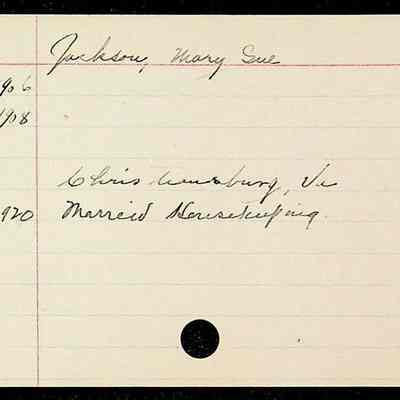 Jackson, Mary Sue
906
1908
Christiansburg, Va
920 Married Housekeeping.